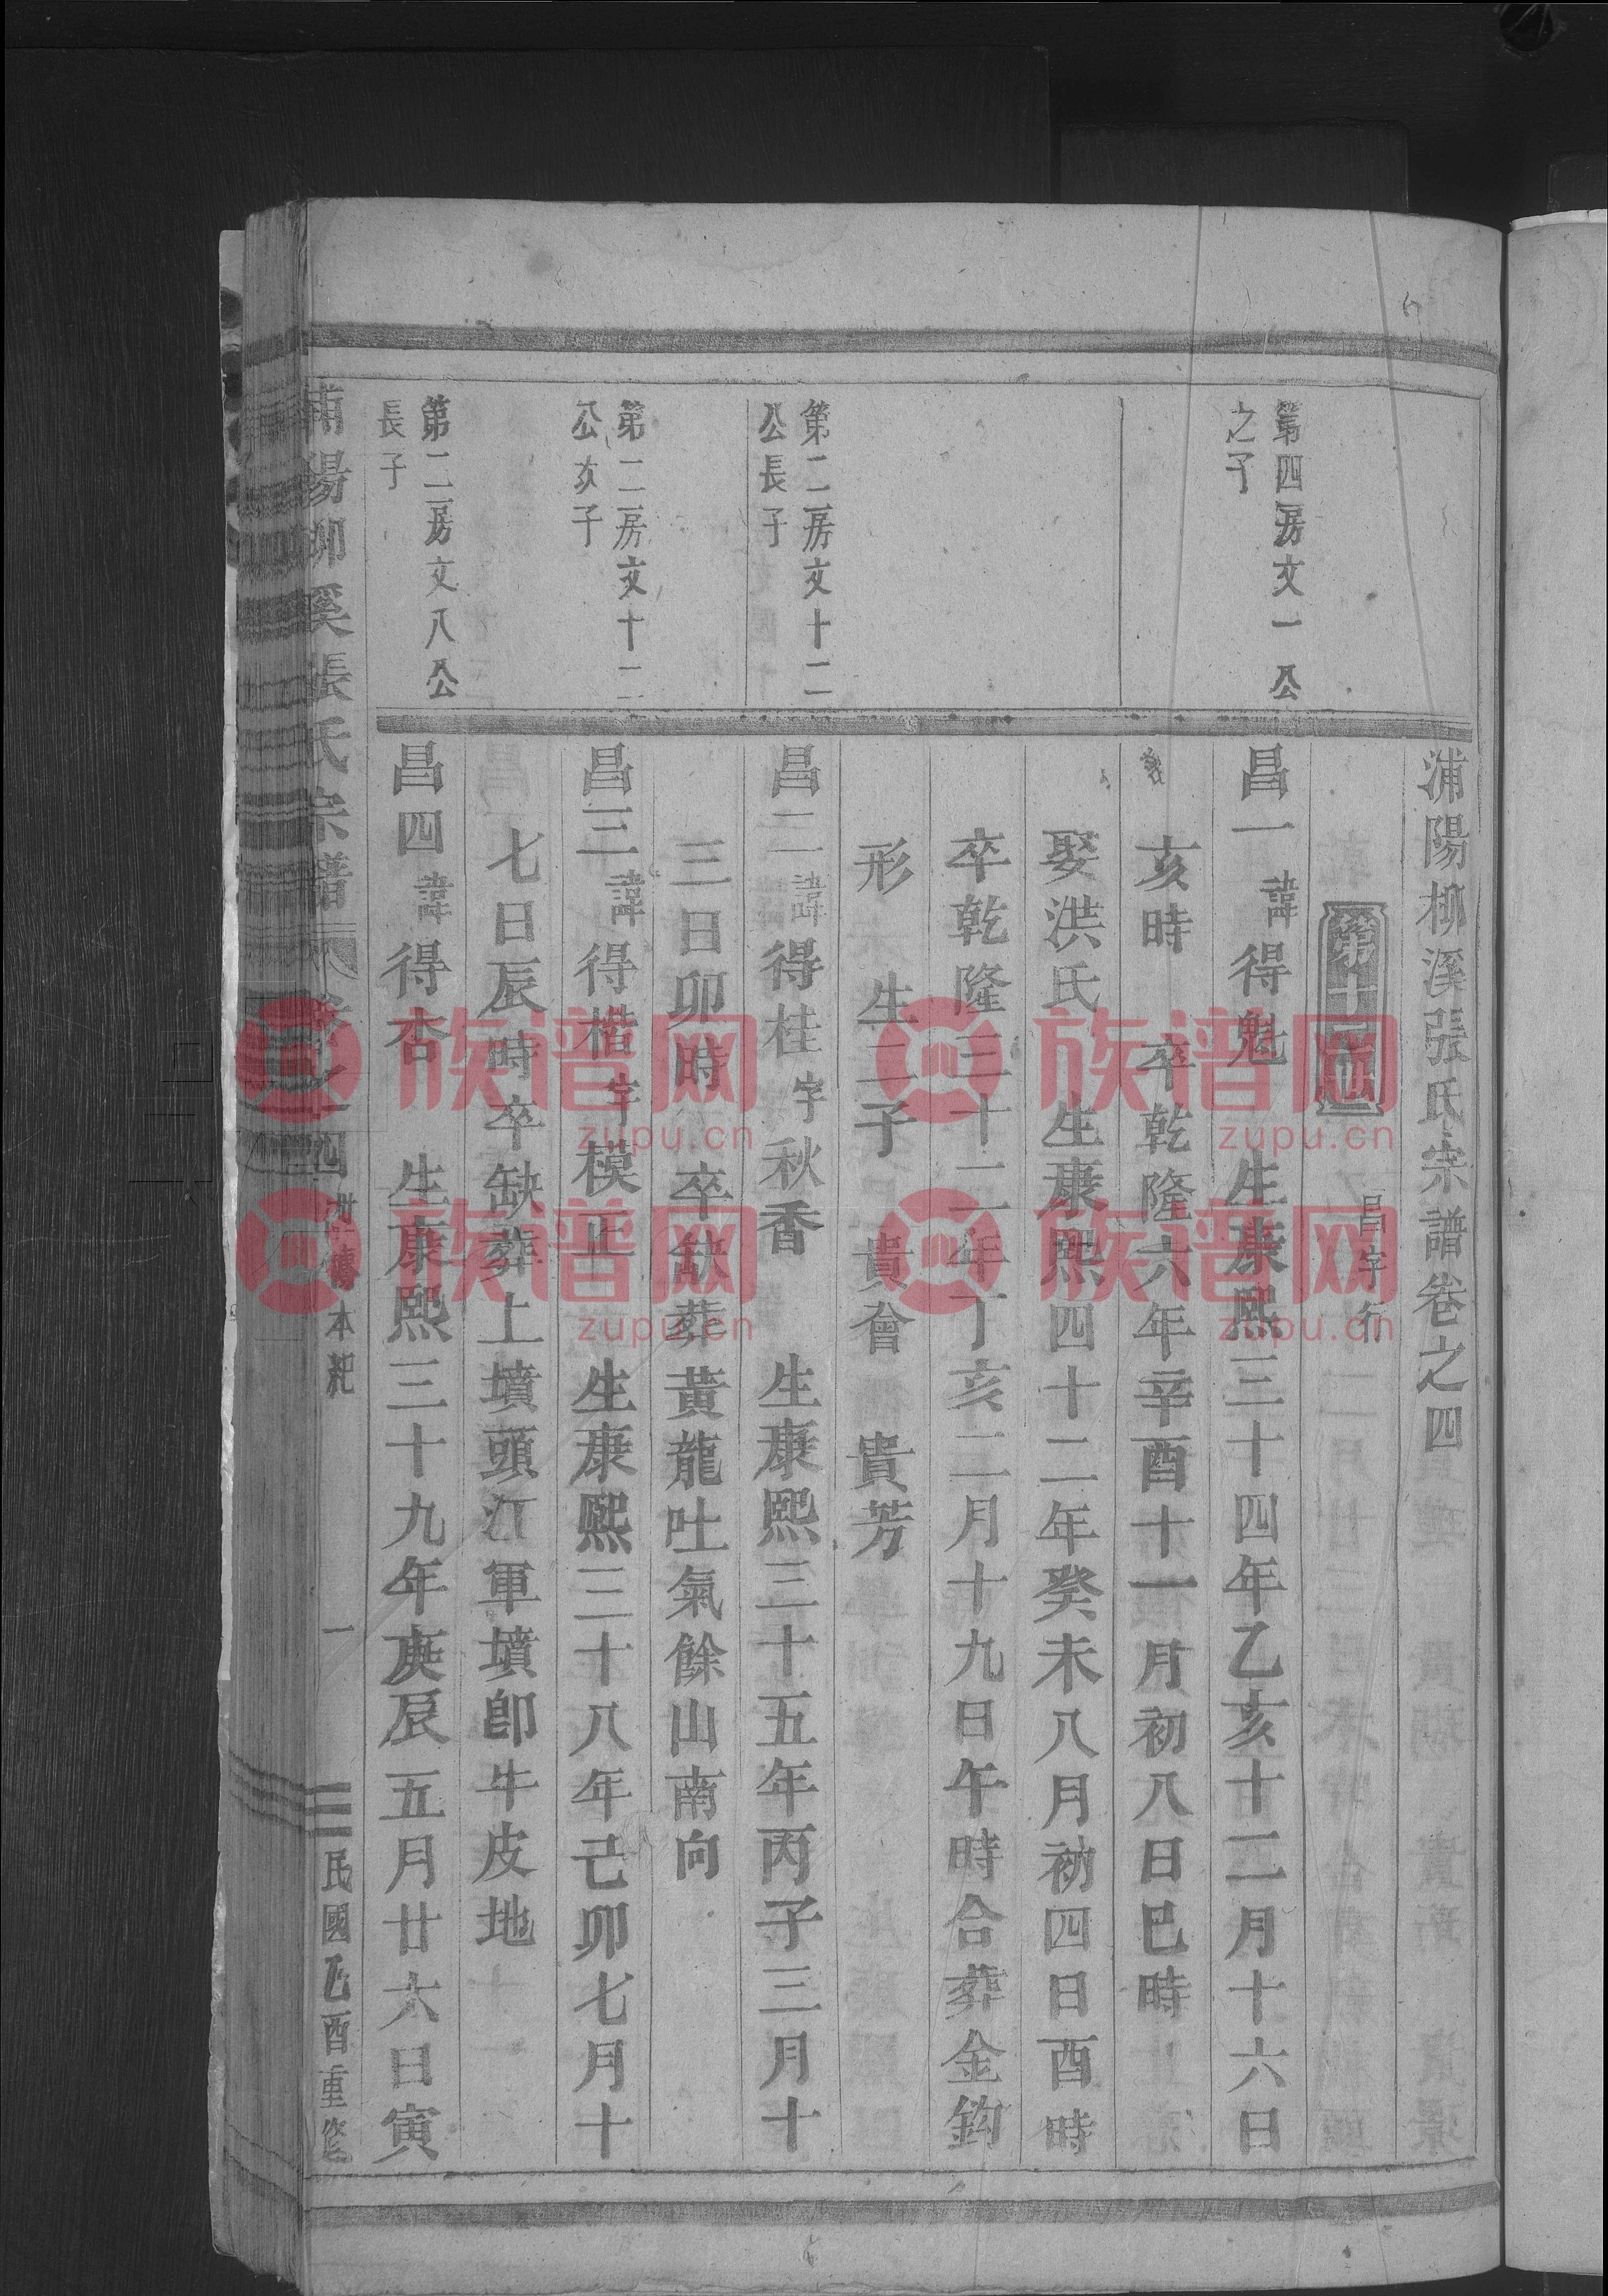 浦陽柳溪張氏宗譜卷之四
昌字行
第四房文一公
之子
昌一諱得魁 生康熙三十四年乙亥十二月十六日
亥時 卒乾隆六年辛酉十一月初八日巳時
娶洪氏 生康熙四十二年癸未八月初四日酉時
卒乾隆三十二年丁亥二月十九日午時合葬金鈎
形 生二子 貴會 貴芳
第二房文十二
公長子
昌二諱得桂字秋香 生康熙三十五年丙子三月十
三日卯時 卒缺葬黃龍吐氣餘山南向
第二房文十二
公次子
昌三諱得楷字模正 生康熙三十八年己卯七月十
七日辰時卒缺葬上墳頭江軍墳卽牛皮地
第二房文八公
長子
昌四諱得杏 生康熙三十九年庚辰五月廿六日寅
浦陽柳溪張氏宗譜 卷之四 本紀 一 民國乙酉重修
族谱网
zupu.cn
族谱网
zupu.cn
族谱网
zupu.cn
族谱网
zupu.cn